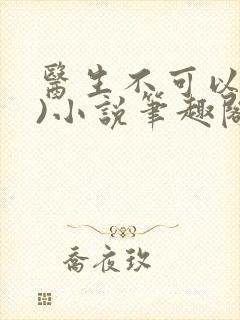 醫生不可以
)小說筆趣閣
喬夜玖